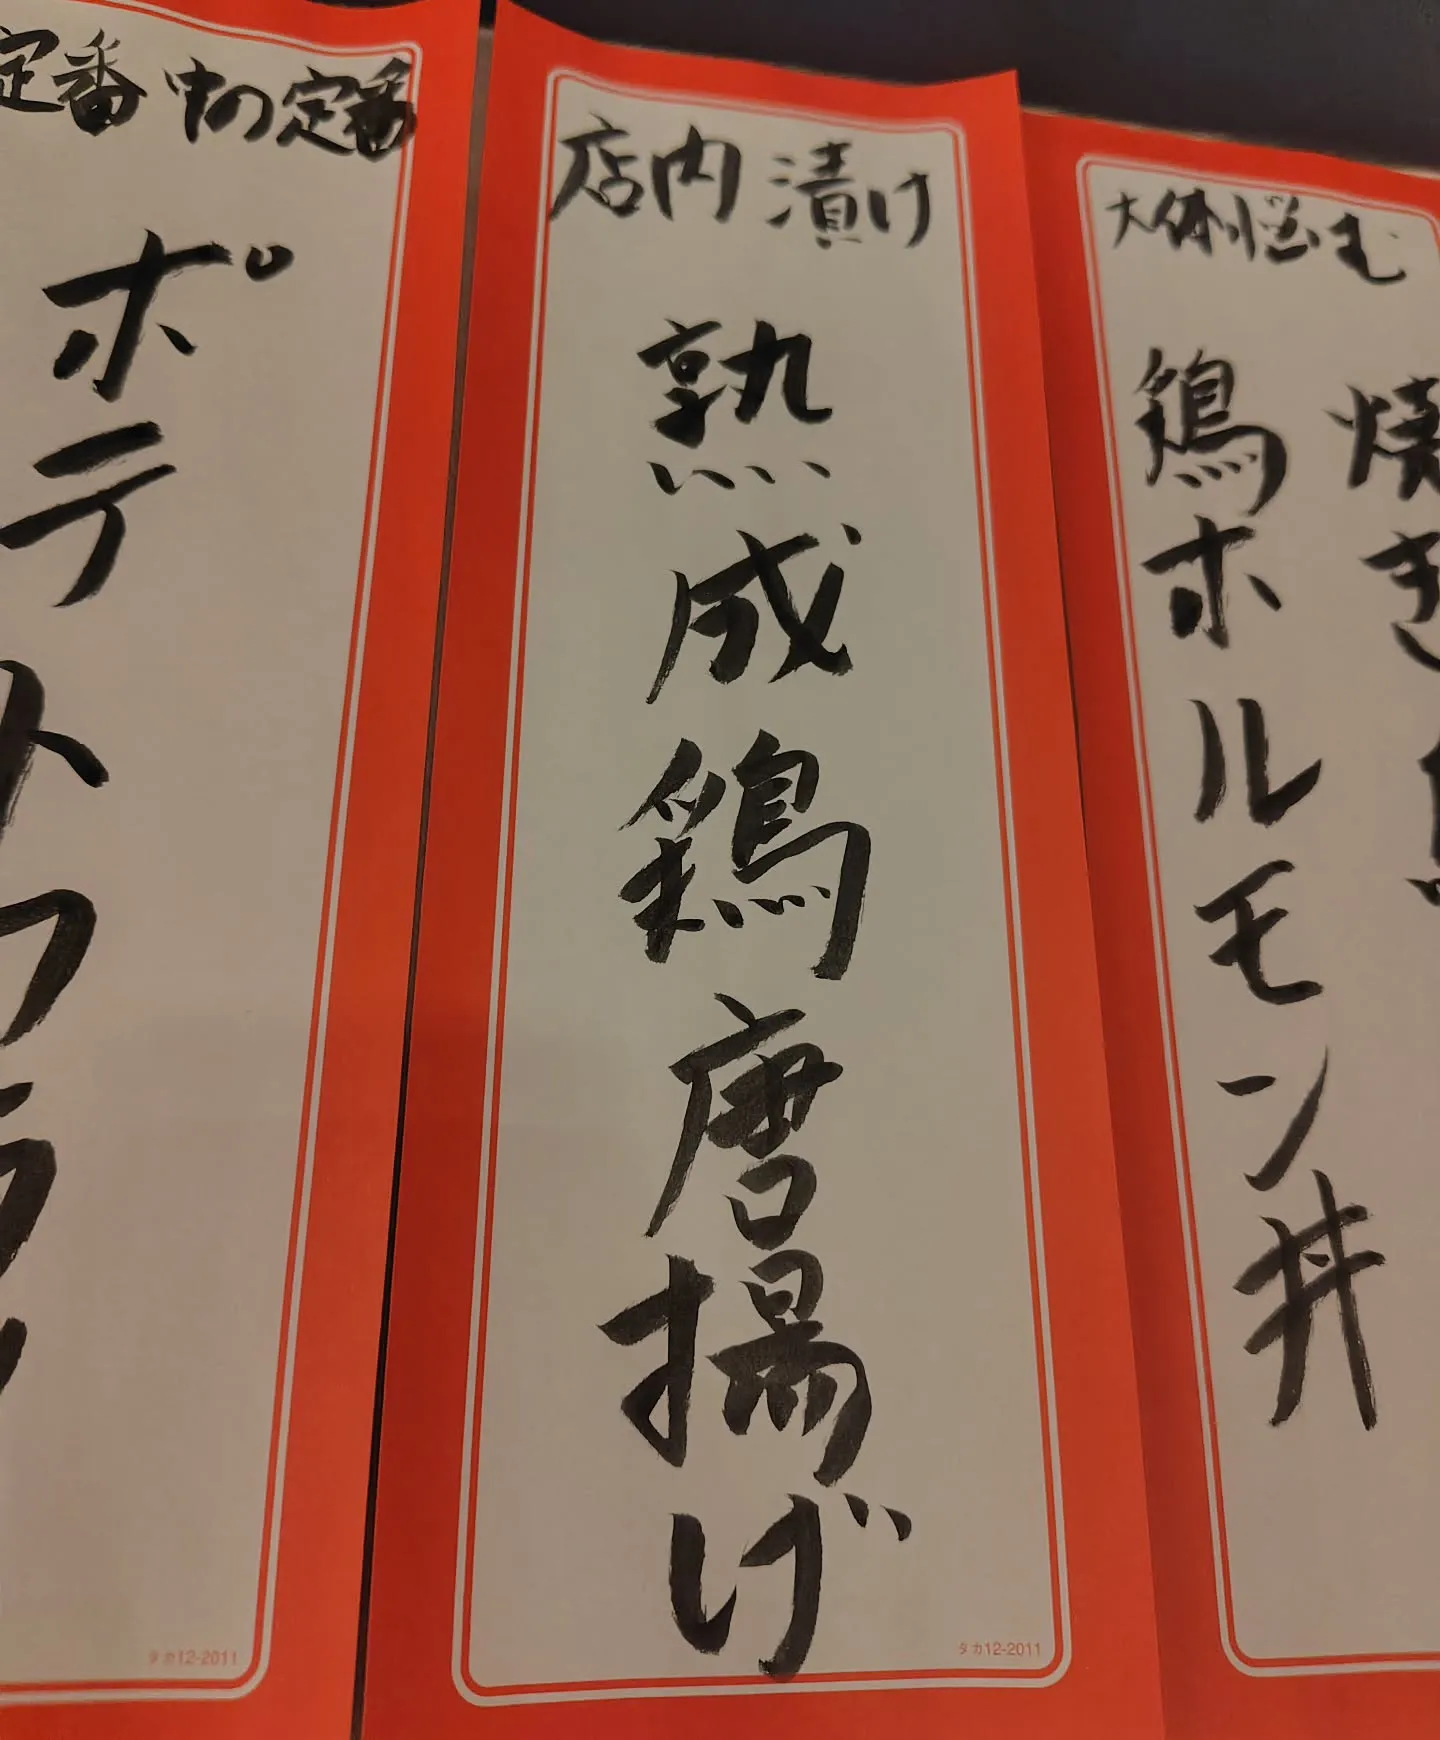 定番中の定番
ポテトフライ
タカ12-2011
店内漬け
熟成鶏唐揚げ
タカ12-2011
大体悩む
焼き鳥
鶏ホルモン丼